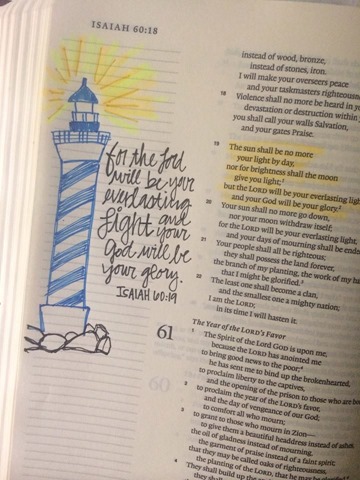 ISAIAH 60:18
for the Lord
will be your
everlasting
light and
your
God will be
your glory.
ISAIAH 60:19
instead of wood, bronze,
instead of stones, iron.
I will make your overseers peace
and your taskmasters righteousn
18 Violence shall no more be heard in y
devastation or destruction within
you shall call your walls Salvation,
and your gates Praise.
19 The sun shall be no more
your light by day,
nor for brightness shall the moon
give you light;
but the LORD will be your everlasting ligh
and your God will be your glory.
20 Your sun shall no more go down,
nor your moon withdraw itself;
for the LORD will be your everlasting light,
and your days of mourning shall be ende
21 Your people shall all be righteous;
they shall possess the land forever,
the branch of my planting, the work of my ha
that I might be glorified.
22 The least one shall become a clan,
and the smallest one a mighty nation;
I am the LORD;
in its time I will hasten it.
The Year of the LORD's Favor
61 1 The Spirit of the Lord GOD is upon me,
because the LORD has anointed me
to bring good news to the poor;
he has sent me to bind up the brokenhearted,
to proclaim liberty to the captives,
and the opening of the prison to those who are bo
2 to proclaim the year of the LORD's favor,
and the day of vengeance of our God;
to comfort all who mourn;
3 to grant to those who mourn in Zion—
to give them a beautiful headdress instead of ashes,
the oil of gladness instead of mourning,
the garment of praise instead of a faint spirit;
that they may be called oaks of righteousness,
the planting of the LORD, that he may be glorified.
4 They shall build up the
60